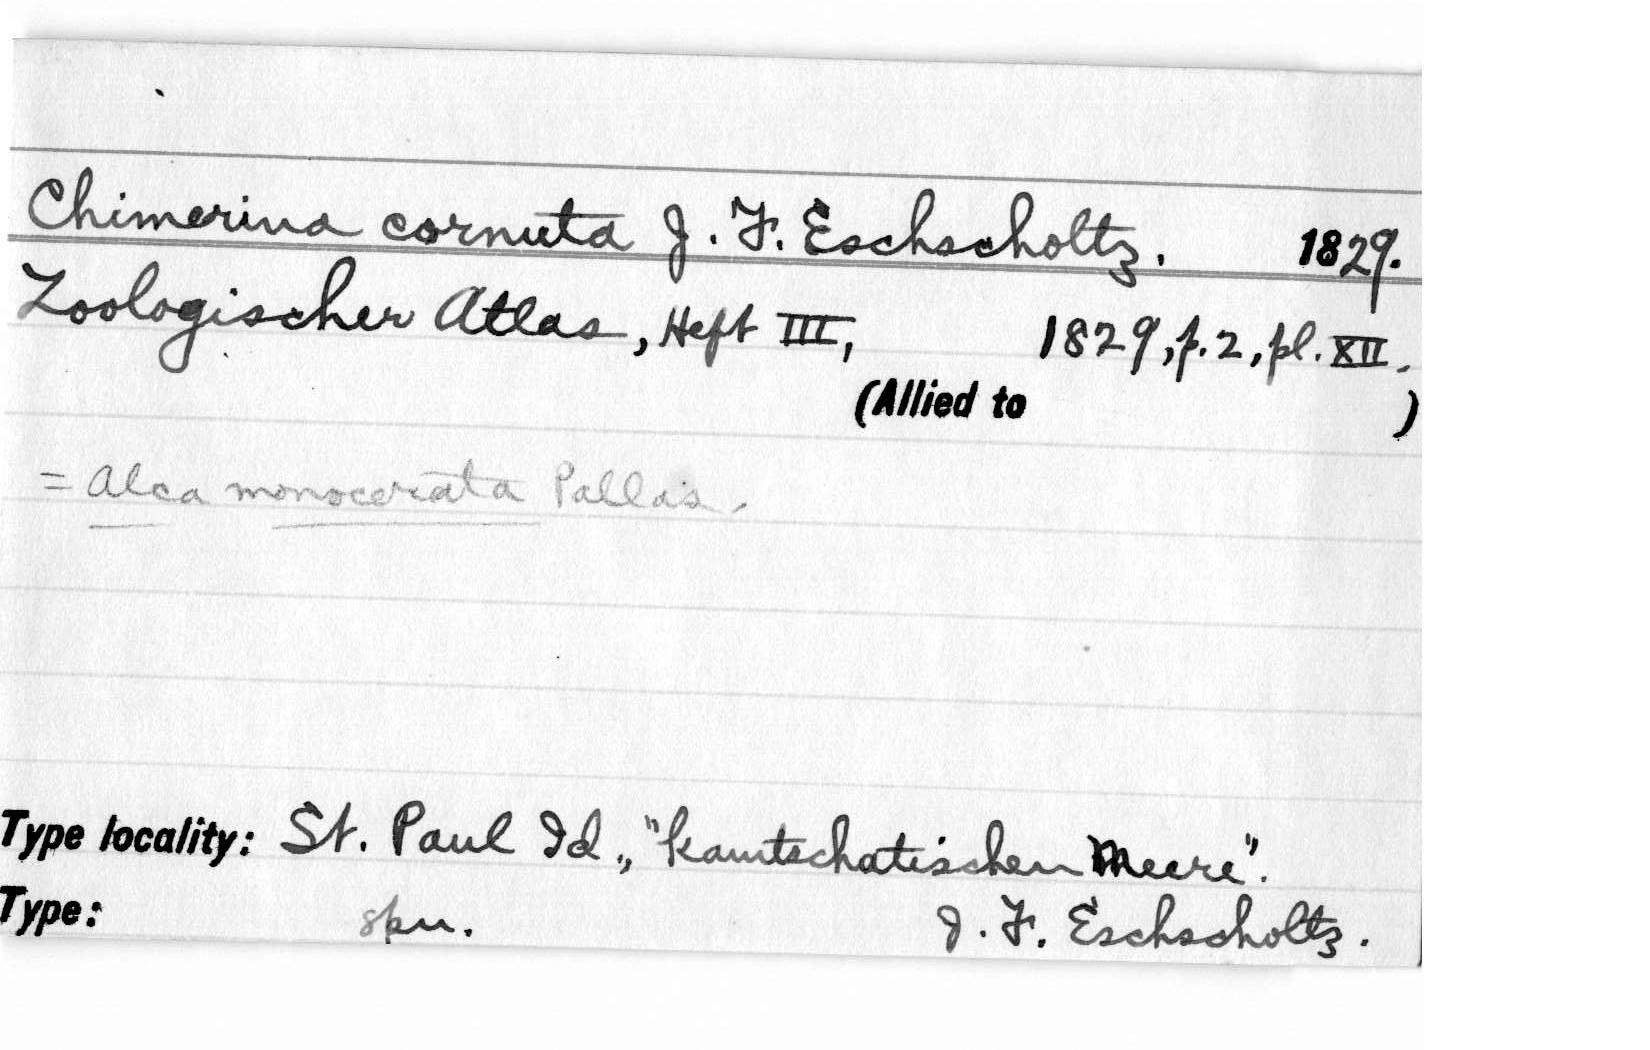 Chimerina cornuta J. F. Eschscholtz. 1829.
Zoologischer Atlas, Heft III, 1829, p. 2, pl. XII.
(Allied to )
= Alca monocerata Pallas.
Type locality: St. Paul Id., "kamtschatischen Meere".
Type: spm. J. F. Eschscholtz.